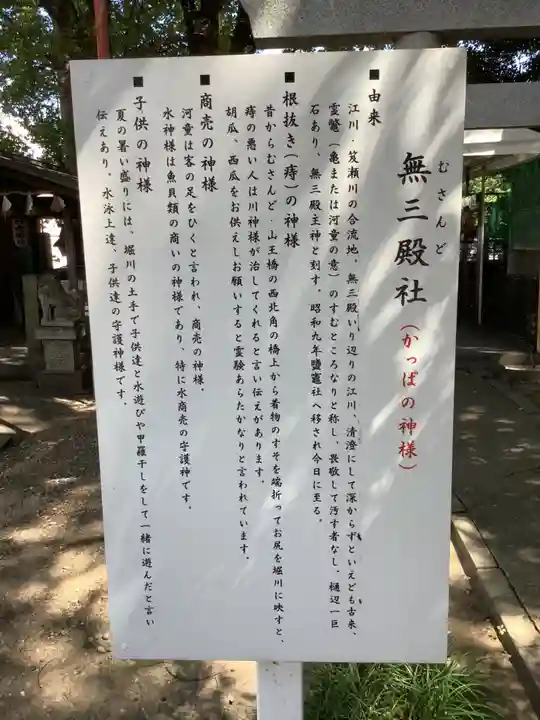 むさんど
無三殿社（かっぱの神様）
■由来
江川・笈瀬川の合流地。無三殿いり辺りの江川、清澄にして深からずといえども古来、
霊鼈（亀または河童の意）のすむところなりと称し、畏敬して汚す者なし。樋辺一巨
石あり、無三殿主神と刻す。昭和九年鹽竈社へ移され今日に至る。
■根抜き（痔）の神様
昔からむさんど・山王橋の西北角の橋上から着物のすそを端折ってお尻を堀川に映すと、
痔の悪い人は川神様が治してくれると言い伝えがあります。
胡瓜、西瓜をお供えしお願いすると霊験あらたかなりと言われています。
■商売の神様
河童は客の足をひくと言われ、商売の神様。
水神様は魚貝類の商いの神様であり、特に水商売の守護神です。
■子供の神様
夏の暑い盛りには、堀川の土手で子供達と水遊びや甲羅干しをして一緒に遊んだと言い
伝えあり。水泳上達、子供達の守護神様です。